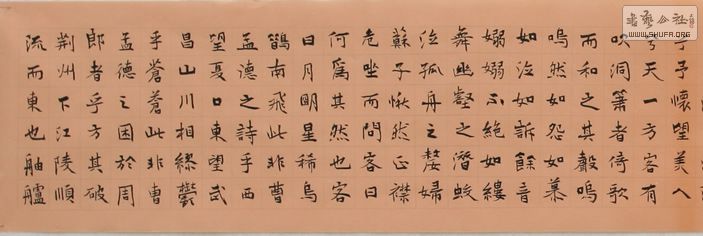 予懷望美人
兮天一方客有
吹洞簫者倚歌
而和之其聲嗚
嗚然如怨如慕
如泣如訴餘音
嫋嫋不絕如縷
舞幽壑之潛蛟
泣孤舟之嫠婦
蘇子愀然正襟
危坐而問客曰
何爲其然也客
曰月明星稀烏
鵲南飛此非曹
孟德之詩乎西
望夏口東望武
昌山川相繆鬱
乎蒼蒼此非曹
孟德之困於周
郎者乎方其破
荆州下江陵順
流而東也舳艫
書藝公社
WWW.SHUFA.ORG